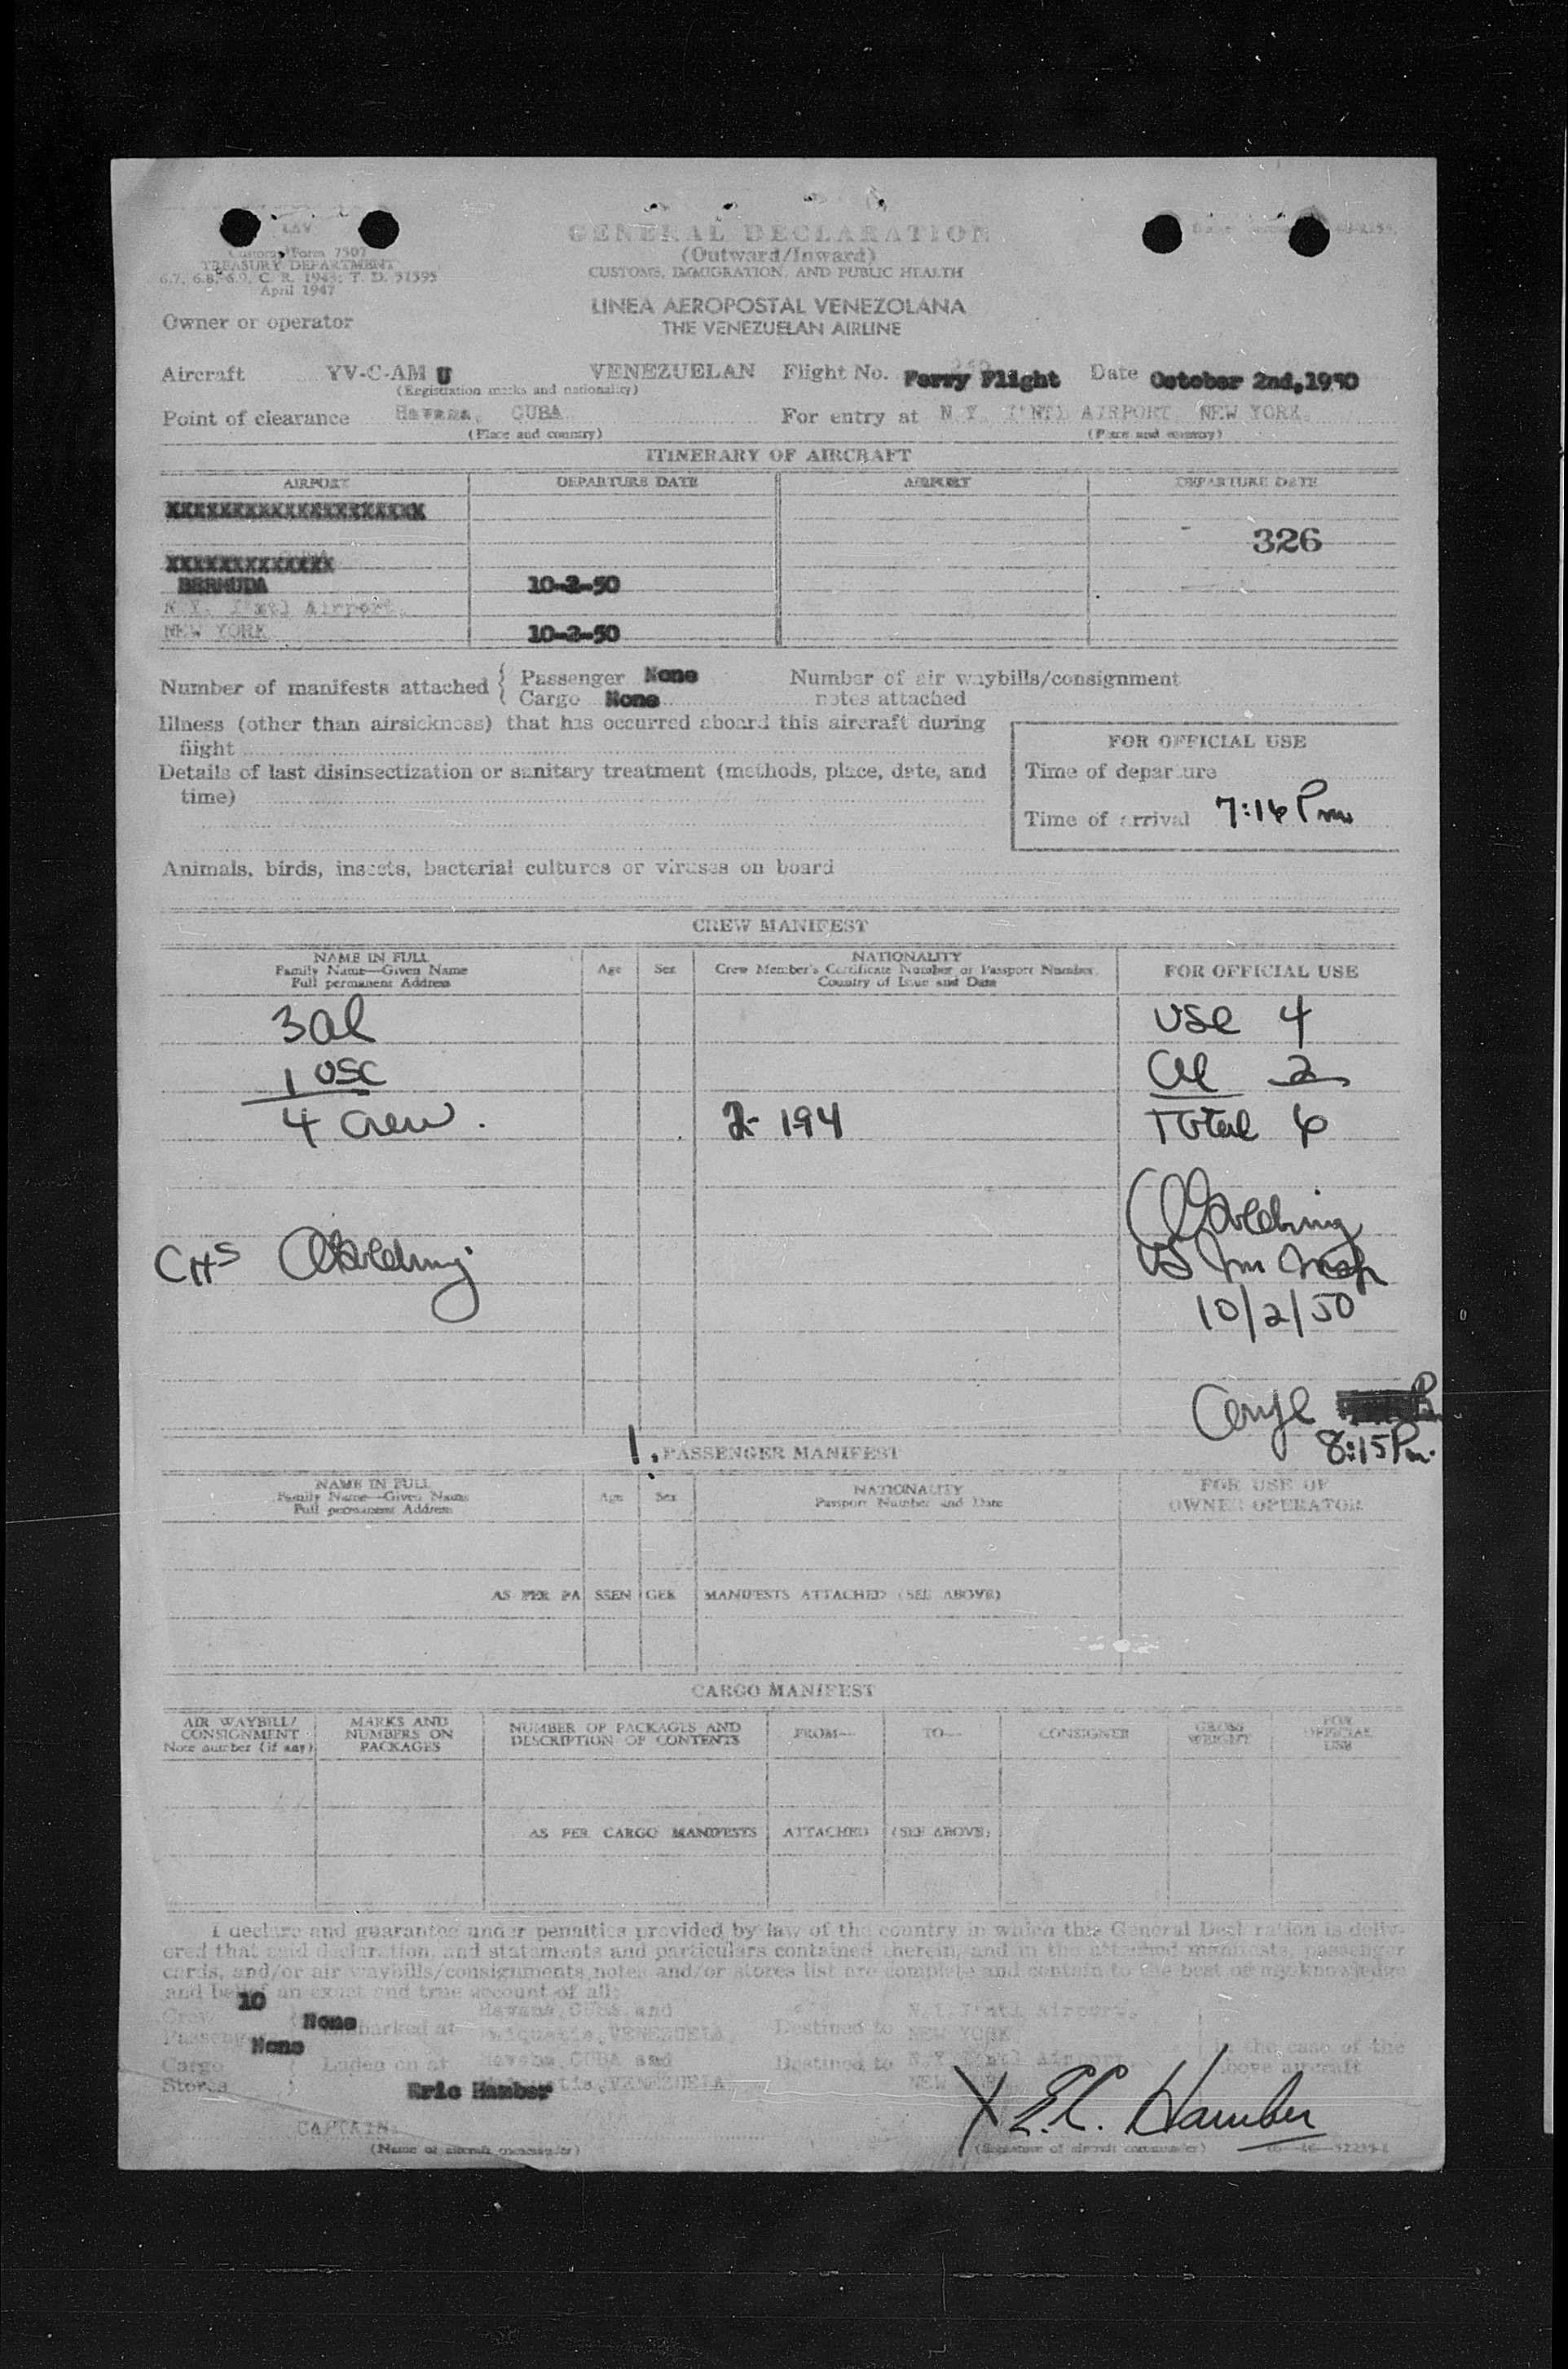 LAV
Customs Form 7507
TREASURY DEPARTMENT
6.7, 6.8, 6.9, C. R. 1943; T. D. 51595
April 1947
GENERAL DECLARATION
(Outward/Inward)
CUSTOMS, IMMIGRATION, AND PUBLIC HEALTH
LINEA AEROPOSTAL VENEZOLANA
THE VENEZUELAN AIRLINE
Owner or operator
Aircraft YV-C-AM U VENEZUELAN Flight No. Ferry Flight Date October 2nd,1950
(Registration marks and nationality)
Point of clearance Havana, CUBA For entry at N.Y. I'NTL AIRPORT, NEW YORK.
(Place and country) (Place and country)
ITINERARY OF AIRCRAFT
AIRPORT DEPARTURE DATE AIRPORT DEPARTURE DATE
XXXXXXXXXXXXXXXXXXXXX
326
XXXXXXXXXXXXX
BERMUDA 10-2-50
N.Y. I'ntl Airport.
NEW YORK 10-2-50
Number of manifests attached { Passenger None Number of air waybills/consignment
Cargo None notes attached
Illness (other than airsickness) that has occurred aboard this aircraft during
flight
Details of last disinsectization or sanitary treatment (methods, place, date, and
time)
FOR OFFICIAL USE
Time of departure
Time of arrival 7:16 Pm
Animals, birds, insects, bacterial cultures or viruses on board
CREW MANIFEST
NAME IN FULL
Family Name—Given Name
Full permanent Address
Age Sex
NATIONALITY
Crew Member's Certificate Number or Passport Number,
Country of Issue and Date
FOR OFFICIAL USE
3 al USC 4
1 USC al 2
4 Crew. 2-194 Total 6
Goulding
CHS Goulding US Im Insp
10/2/50
8:15 Pm.
1. PASSENGER MANIFEST
NAME IN FULL
Family Name—Given Name
Full permanent Address
Age Sex
NATIONALITY
Passport Number and Date
FOR USE OF
OWNER OPERATOR
AS PER PASSENGER MANIFESTS ATTACHED (SEE ABOVE)
CARGO MANIFEST
AIR WAYBILL/
CONSIGNMENT
Note number (if any)
MARKS AND
NUMBERS ON
PACKAGES
NUMBER OF PACKAGES AND
DESCRIPTION OF CONTENTS
FROM— TO— CONSIGNER
GROSS
WEIGHT
FOR
OFFICIAL
USE
AS PER CARGO MANIFESTS ATTACHED (SEE ABOVE)
I declare and guarantee under penalties provided by law of the country in which this General Declaration is deliv-
ered that said declaration, and statements and particulars contained therein, and in the attached manifests, passenger
cards, and/or air waybills/consignments notes and/or stores list are complete and contain to the best of my knowledge
and belief an exact and true account of all:
Crew 10
Passengers None Embarked at Havana, CUBA and Maiquetia, VENEZUELA Destined to N.Y. I'ntl Airport. NEW YORK
Cargo None
Stores Laden on at Havana, CUBA and Maiquetia, VENEZUELA Destined to N.Y. I'ntl Airport NEW YORK
in the case of the
above aircraft
Eric Hamber
CAPTAIN.
(Name of aircraft commander)
X E.C. Hamber
(Signature of aircraft commander)